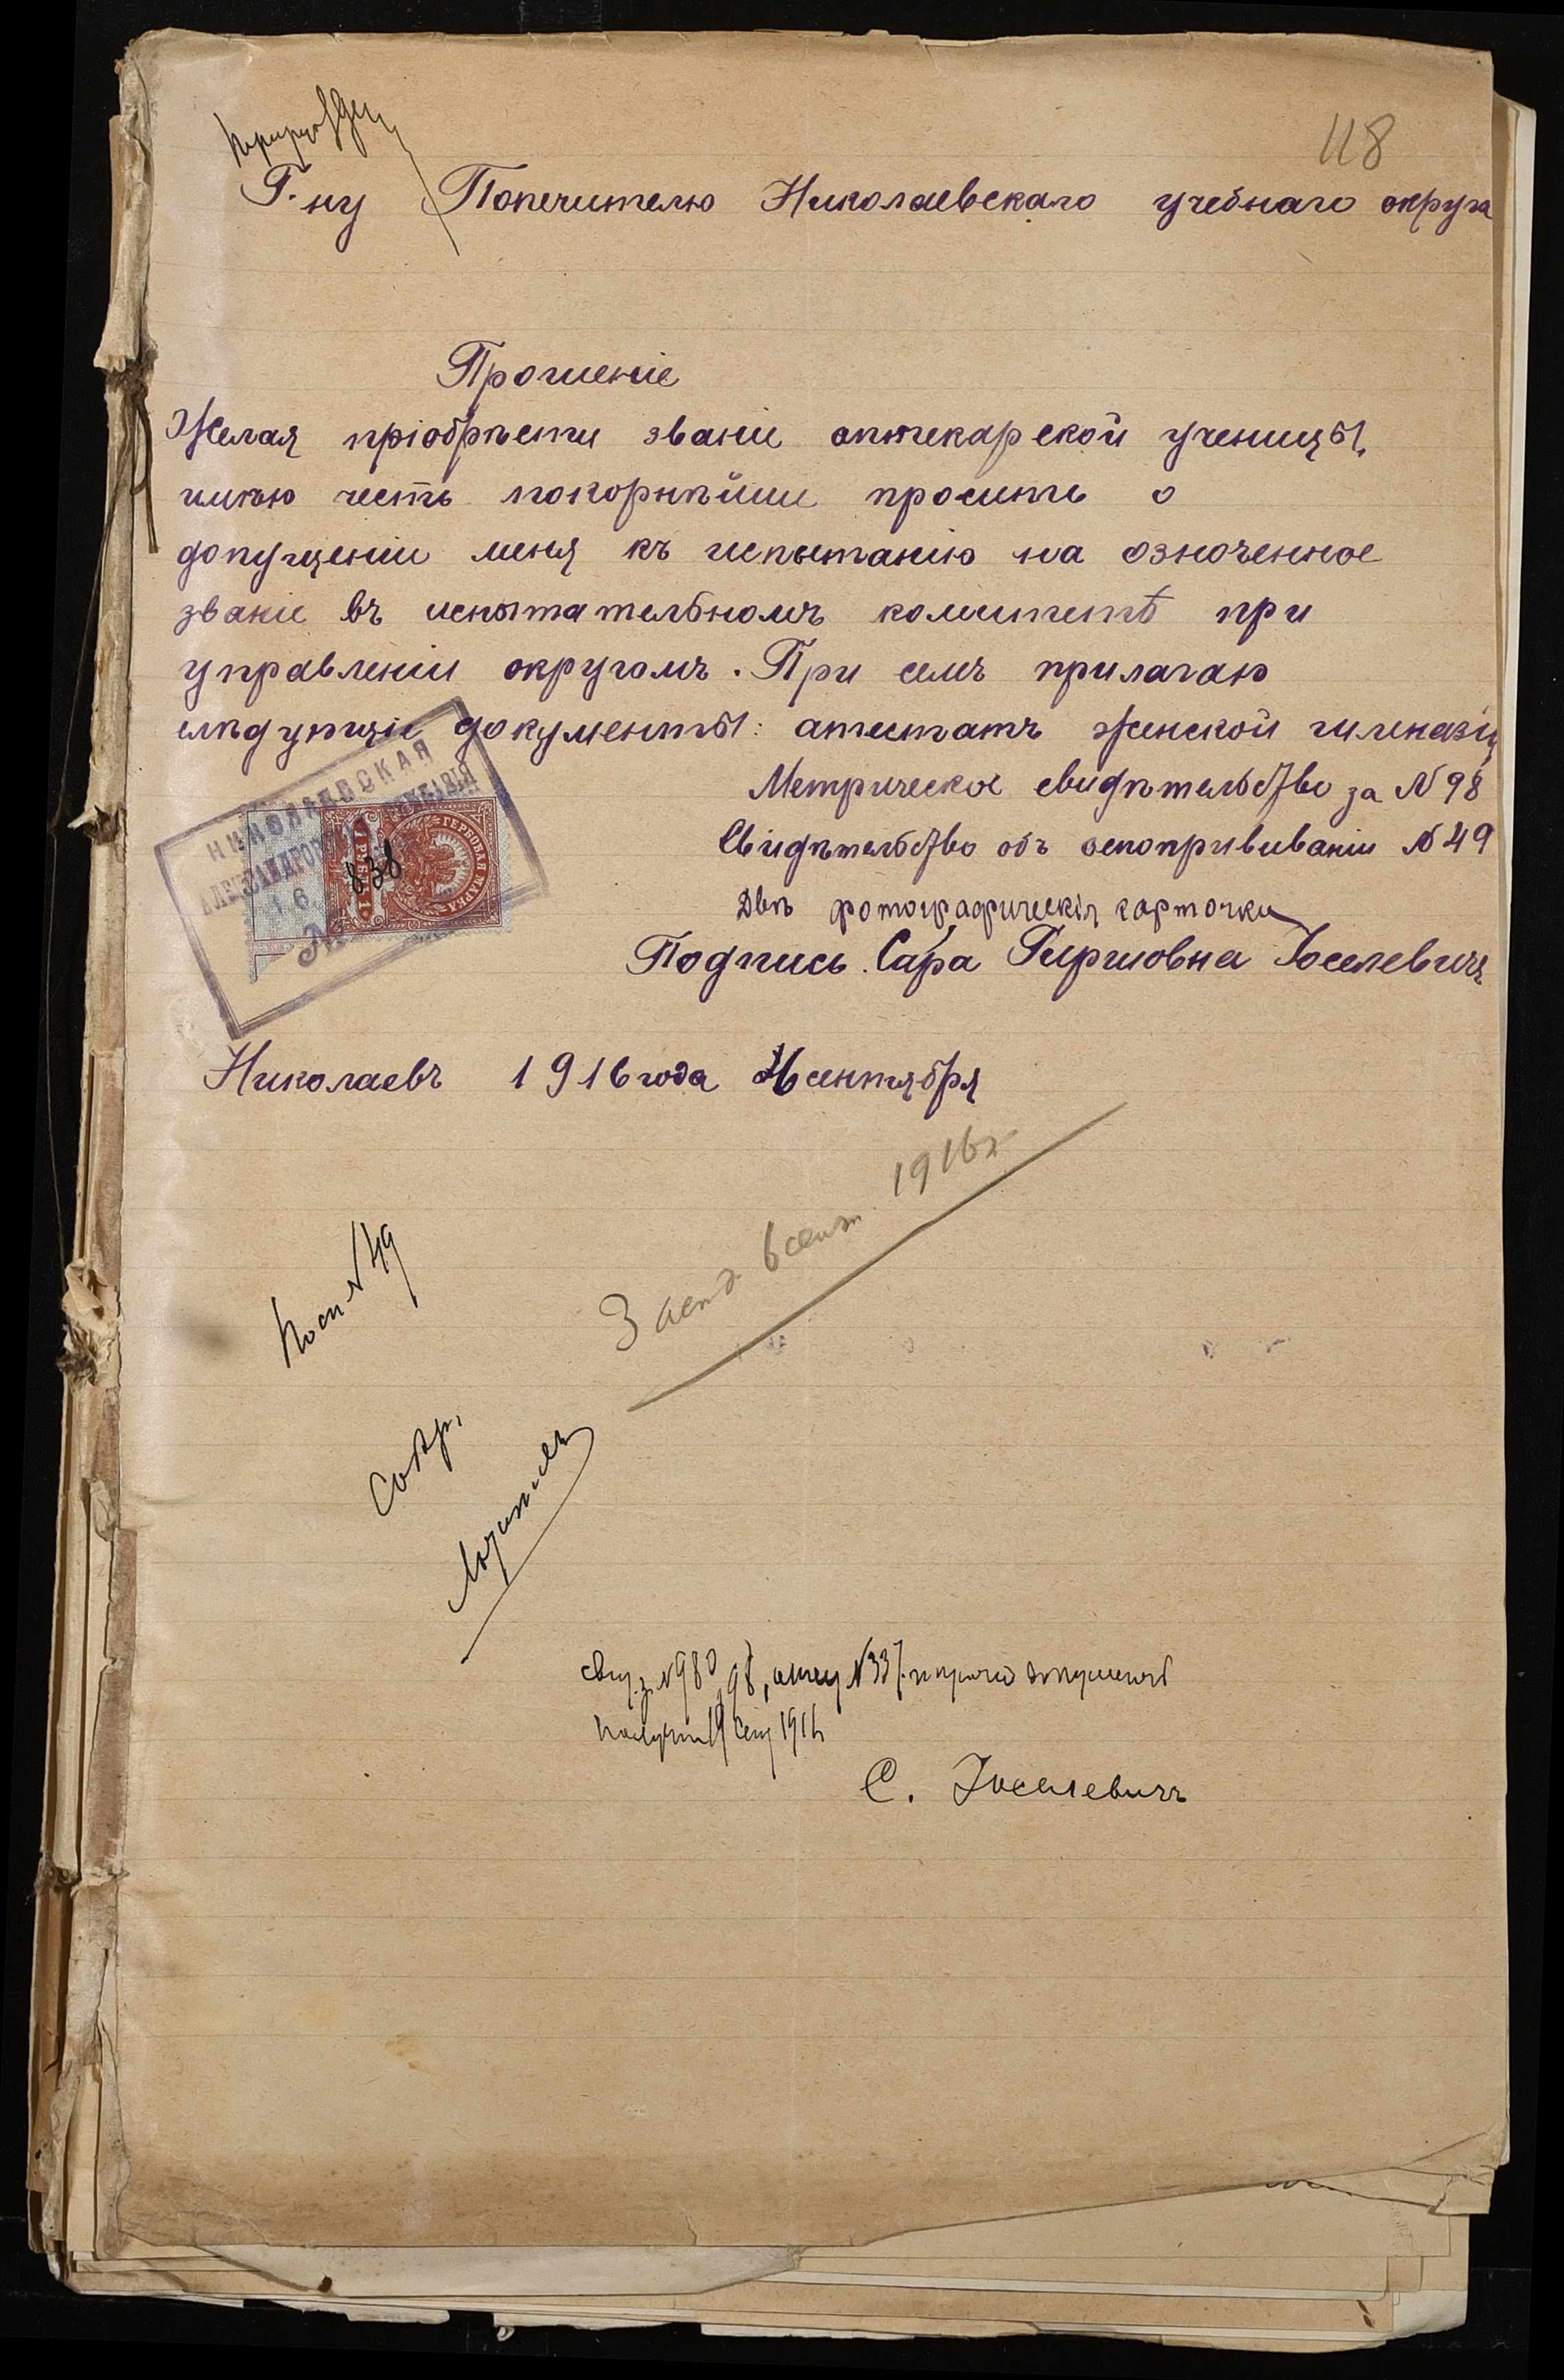 118
Г-ну Попечителю Николаевскаго учебнаго округа
Прошеніе
Желая пріобрѣсти званіе аптекарской ученицы,
имѣю честь покорнѣйше просить о
допущеніи меня къ испытанію на означенное
званіе въ испытательномъ комитетѣ при
управленіи округомъ. При семъ прилагаю
слѣдующіе документы: атестатъ женской гимназіи
Метрическое свидѣтельство за N 98
Свидѣтельство объ оспопрививаніи N 49
Двѣ фотографическія карточки
Подпись. Сара Гиршовна Іоселевичъ
НИКОЛАЕВСКАЯ
АЛЕКСАНДРОВСКАЯ ГИМНАЗІЯ
ГЕРБОВАЯ МАРКА
1 РУБЛЬ 1
838
Николаевъ 1916 года сентября
сент. 1916 г
N 49
свид. з. N 980, 98, N 337
Получ 19 Сен 1916
С. Іоселевичъ